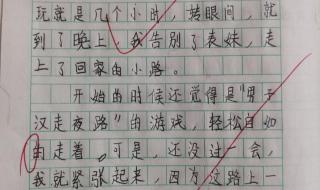 玩就是几个小时，转眼间，就
到了晚上，我告别了表妹，走
上了回家的小路。
开始的时候还觉得是“男子
汉走夜路”的游戏，轻松自如
的走着。可是，还没过一会，
我就紧张起来，因为这路上一